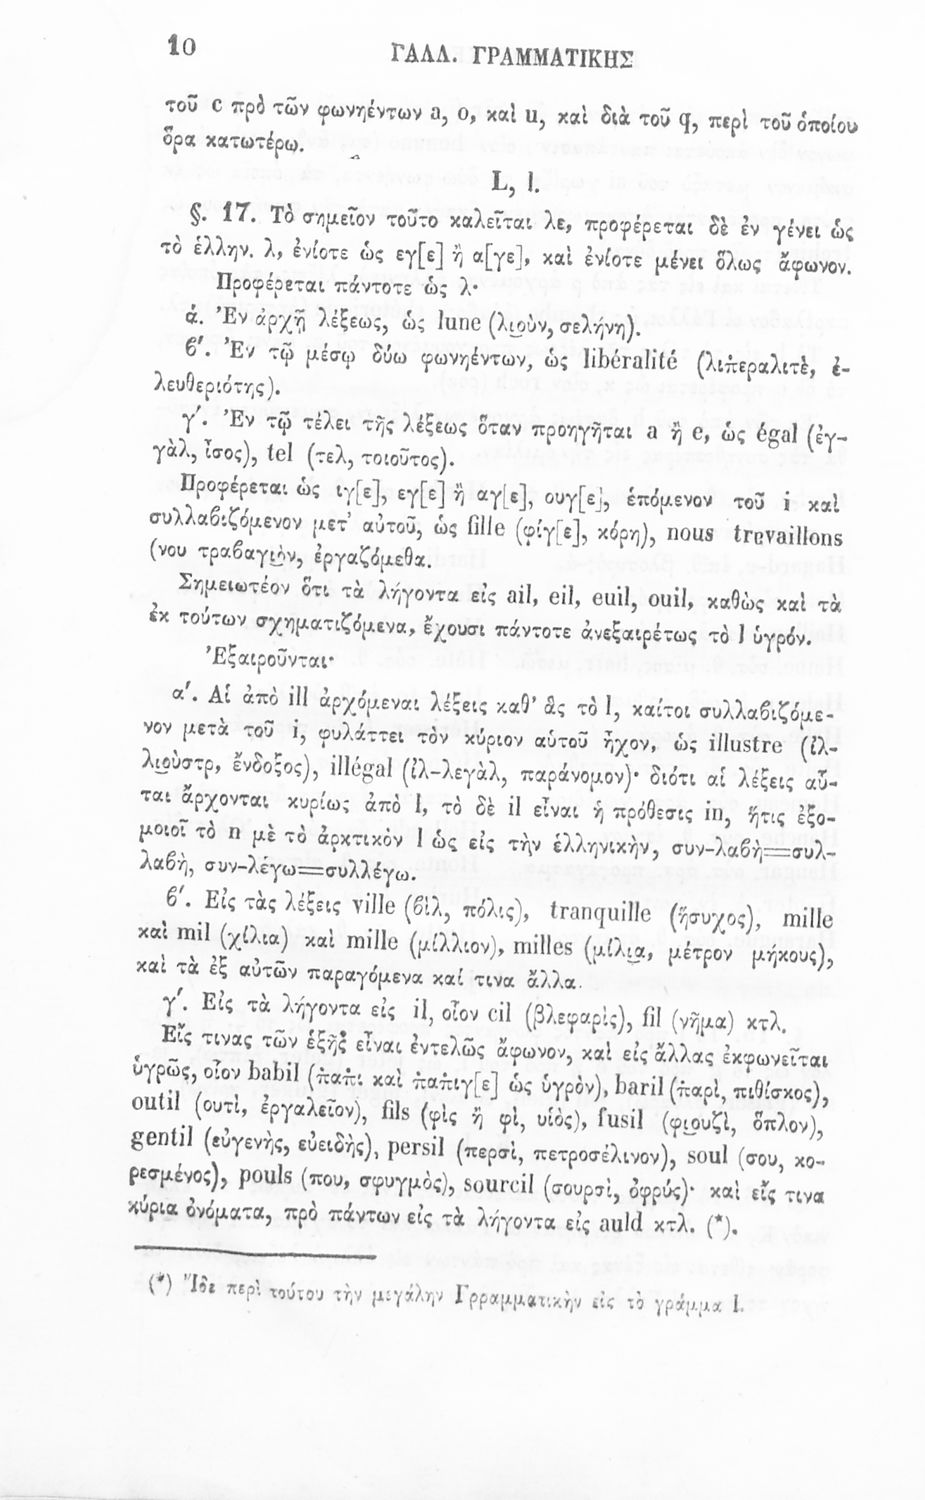 10
ΓΑΛΛ. ΓΡΑΜΜΑΤΙΚΗΣ
τοῦ c πρὸ τῶν φωνηέντων a, o, καὶ u, καὶ διὰ τοῦ q, περὶ τοῦ ὁποίου
ὅρα κατωτέρω.
L, l.
§. 17. Τὸ σημεῖον τοῦτο καλεῖται λε, προφέρεται δὲ ἐν γένει ὡς
τὸ ἑλλην. λ, ἐνίοτε ὡς εγ[ε] ἢ α[γε], καὶ ἐνίοτε μένει ὅλως ἄφωνον.
Προφέρεται πάντοτε ὡς λ·
ά. Ἐν ἀρχῇ λέξεως, ὡς lune (λιοὺν, σελήνη).
β΄. Ἐν τῷ μέσῳ δύω φωνηέντων, ὡς libéralité (λιπεραλιτὲ, ἐ-
λευθεριότης).
γ΄. Ἐν τῷ τέλει τῆς λέξεως ὅταν προηγῆται a ἢ e, ὡς égal (ἐγ-
γὰλ, ἶσος), tel (τελ, τοιοῦτος).
Προφέρεται ὡς ιγ[ε], εγ[ε] ἢ αγ[ε], ουγ[ε], ἑπόμενον τοῦ i καὶ
συλλαβιζόμενον μετ’ αὐτοῦ, ὡς fille (φίγ[ε], κόρη), nous travaillons
(νου τραβαγιὸν, ἐργαζόμεθα.
Σημειωτέον ὅτι τὰ λήγοντα εἰς ail, eil, euil, ouil, καθὼς καὶ τὰ
ἐκ τούτων σχηματιζόμενα, ἔχουσι πάντοτε ἀνεξαιρέτως τὸ l ὑγρόν.
Ἐξαιροῦνται·
α΄. Αἱ ἀπὸ ill ἀρχόμεναι λέξεις καθ’ ἃς τὸ l, καίτοι συλλαβιζόμε-
νον μετὰ τοῦ i, φυλάττει τὸν κύριον αὑτοῦ ἦχον, ὡς illustre (ἰλ-
λιοὺστρ, ἔνδοξος), illégal (ἰλ-λεγὰλ, παράνομον)· διότι αἱ λέξεις αὗ-
ται ἄρχονται κυρίως ἀπὸ l, τὸ δὲ il εἶναι ἡ πρόθεσις in, ἥτις ἐξο-
μοιοῖ τὸ n μὲ τὸ ἀρκτικὸν l ὡς εἰς τὴν ἑλληνικὴν, συν-λαβὴ=συλ-
λαβὴ, συν-λέγω=συλλέγω.
β΄. Εἰς τὰς λέξεις ville (βὶλ, πόλις), tranquille (ἥσυχος), mille
καὶ mil (χίλια) καὶ mille (μίλλιον), milles (μίλια, μέτρον μήκους),
καὶ τὰ ἐξ αὐτῶν παραγόμενα καί τινα ἄλλα.
γ΄. Εἰς τὰ λήγοντα εἰς il, οἷον cil (βλεφαρὶς), fil (νῆμα) κτλ.
Εἴς τινας τῶν ἑξῆς εἶναι ἐντελῶς ἄφωνον, καὶ εἰς ἄλλας ἐκφωνεῖται
ὑγρῶς, οἷον babil (παπὶ καὶ παπιγ[ε] ὡς ὑγρὸν), baril (παρὶ, πιθίσκος),
outil (ουτὶ, ἐργαλεῖον), fils (φὶς ἢ φὶ, υἱὸς), fusil (φιουζὶ, ὅπλον),
gentil (εὐγενὴς, εὐειδὴς), persil (περσὶ, πετροσέλινον), soul (σου, κο-
ρεσμένος), pouls (που, σφυγμὸς), sourcil (σουρσὶ, ὀφρύς)· καὶ εἴς τινα
κύρια ὀνόματα, πρὸ πάντων εἰς τὰ λήγοντα εἰς auld κτλ. (*).
(*) Ἴδε περὶ τούτου τὴν μεγάλην Γρραμματικὴν εἰς τὸ γράμμα l.